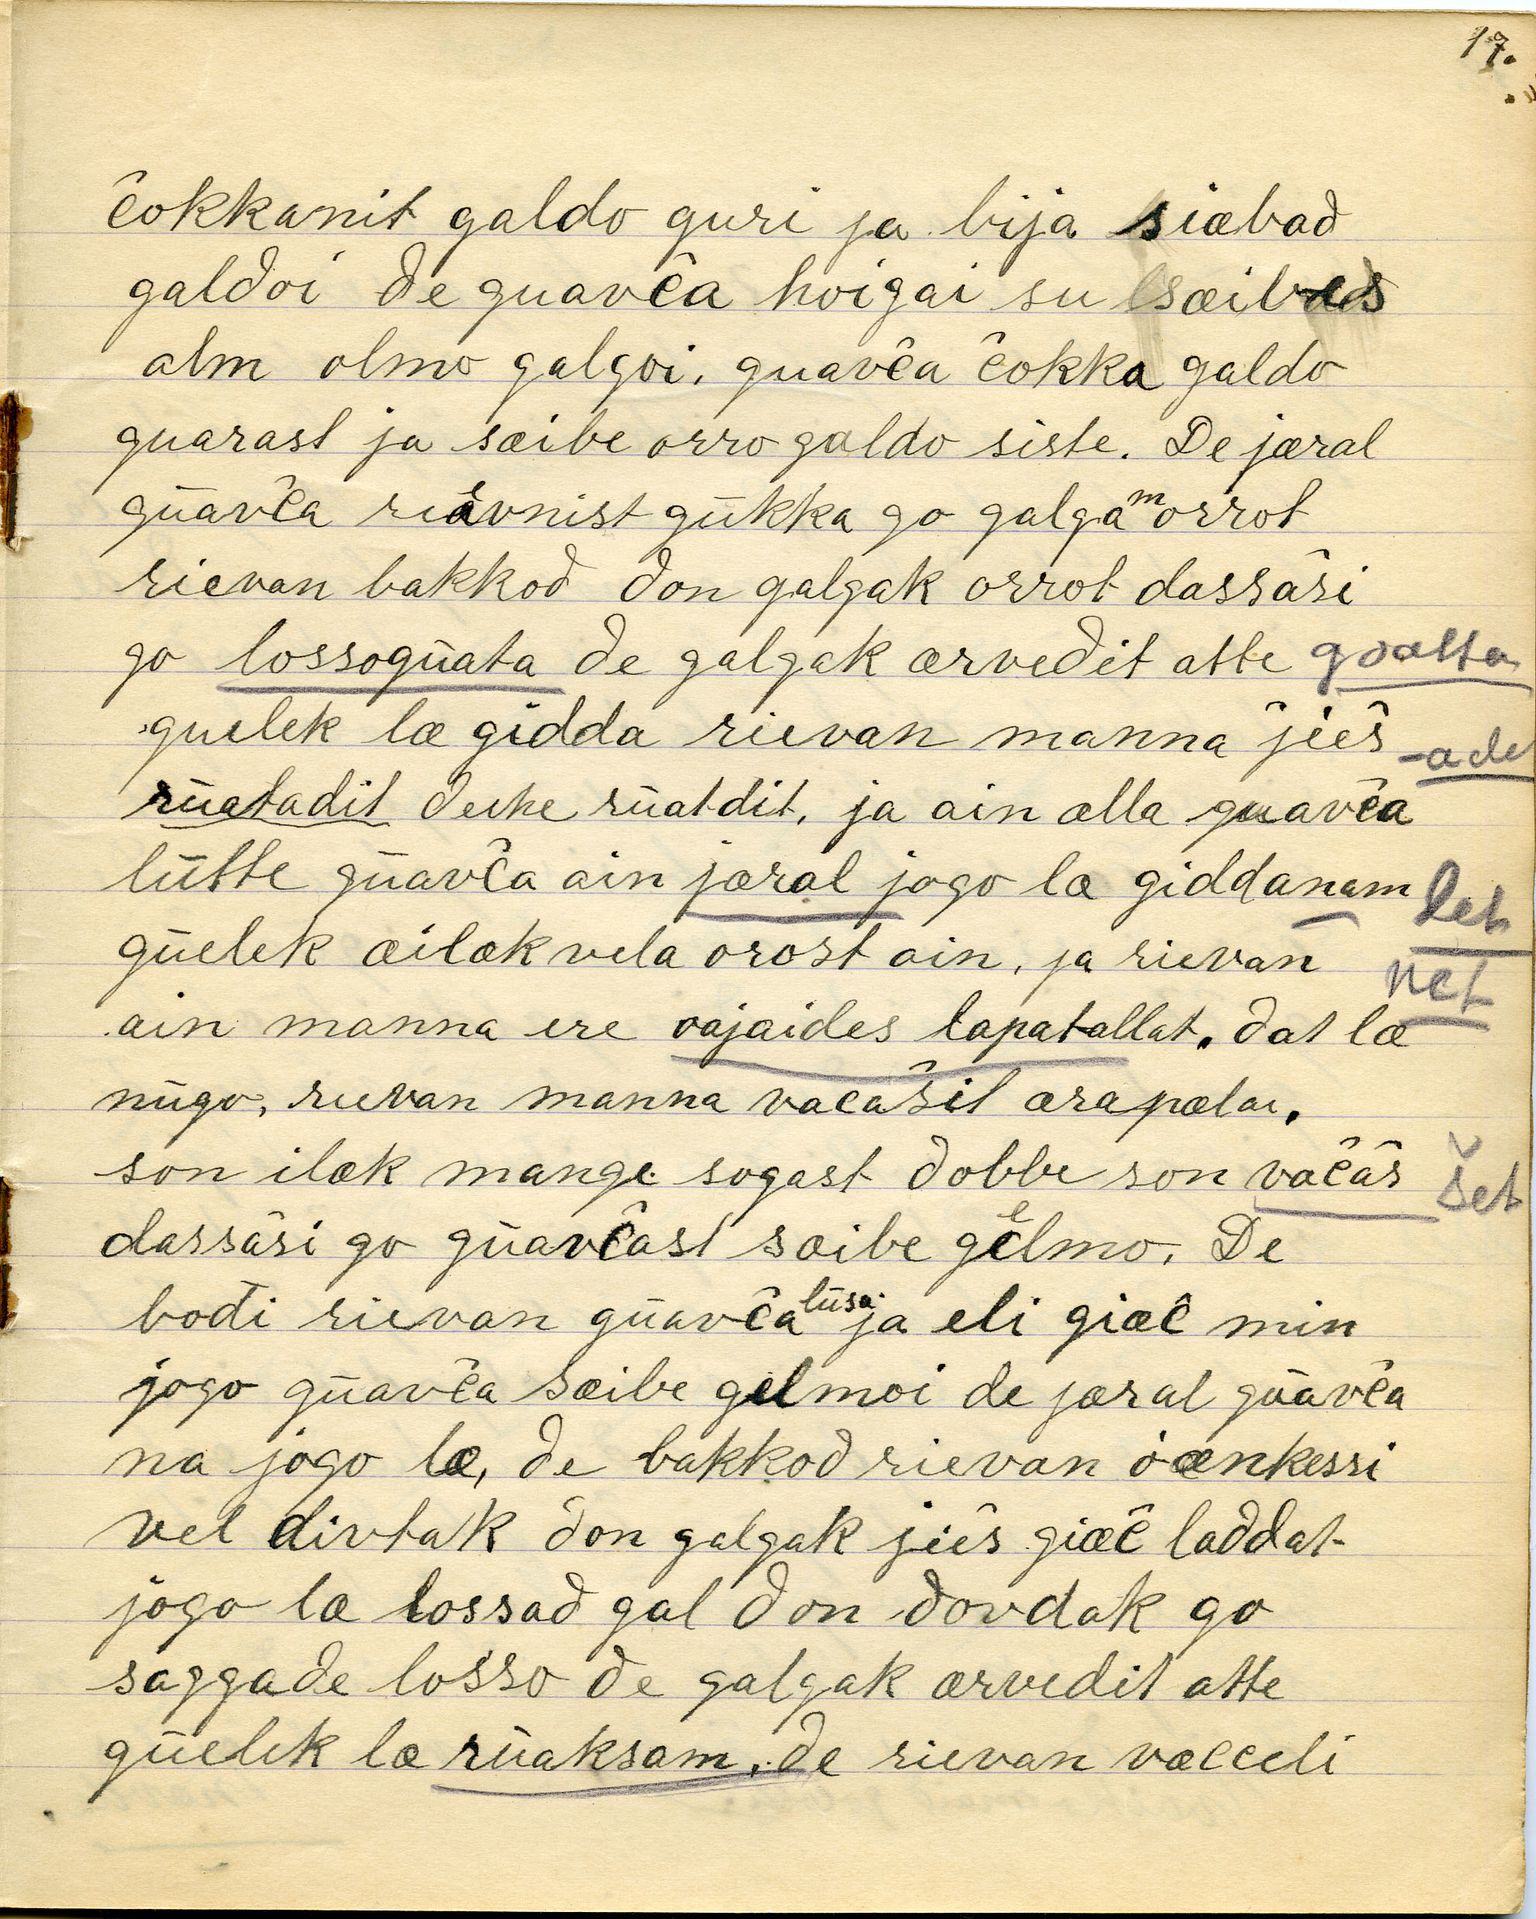 17.
ĉokkanit galdo guri ja bija siæbađ
galđoi đe guavĉa hoigai su sæibas
alm olmo galgoi. guavĉa ĉokka galdo
guarast ja sæibe orro galdo siste. De jæral
gūavĉa riævnist gūkka go galgam orrot
rievan bakkođ đon galgak orrot dassâsi
go lossogūata đe galgak ærveđit atte goatta
guelek læ gidda rievan manna jieŝ -ade
rūatadit deike rūatdit, ja ain ælla guavĉa
lūtte gūavĉa ain jæral jogo læ giddanam let
gūelek æilæk vela orost ain, ja rievan net
ain manna ere vajaides lapatallat. đat læ
nūgo, rievan manna vacaŝit ærapælai.
son ilæk mange sogast đobbe son vaĉâs šet
dassâsi go gūavĉast sæibe gelmo. De
bođi rievan gūavĉa lūsa ja eli giæĉ min
jogo gūavĉa sæibe gelmoi de jæral gūavĉa
na jogo læ, đe bakkođ rievan oænkessi
vel divtak đon galgak jieŝ giæĉ lađđat
jogo læ lossađ gal đon đovdak go
saggađe losso đe galgak ærvedit atte
gūelek læ rūaksam, đe rievan væcceli